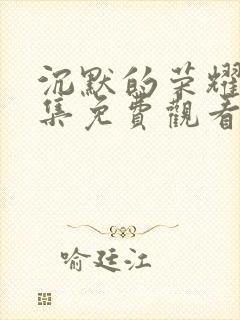 沉默的荣耀
集免費觀看
喻廷江